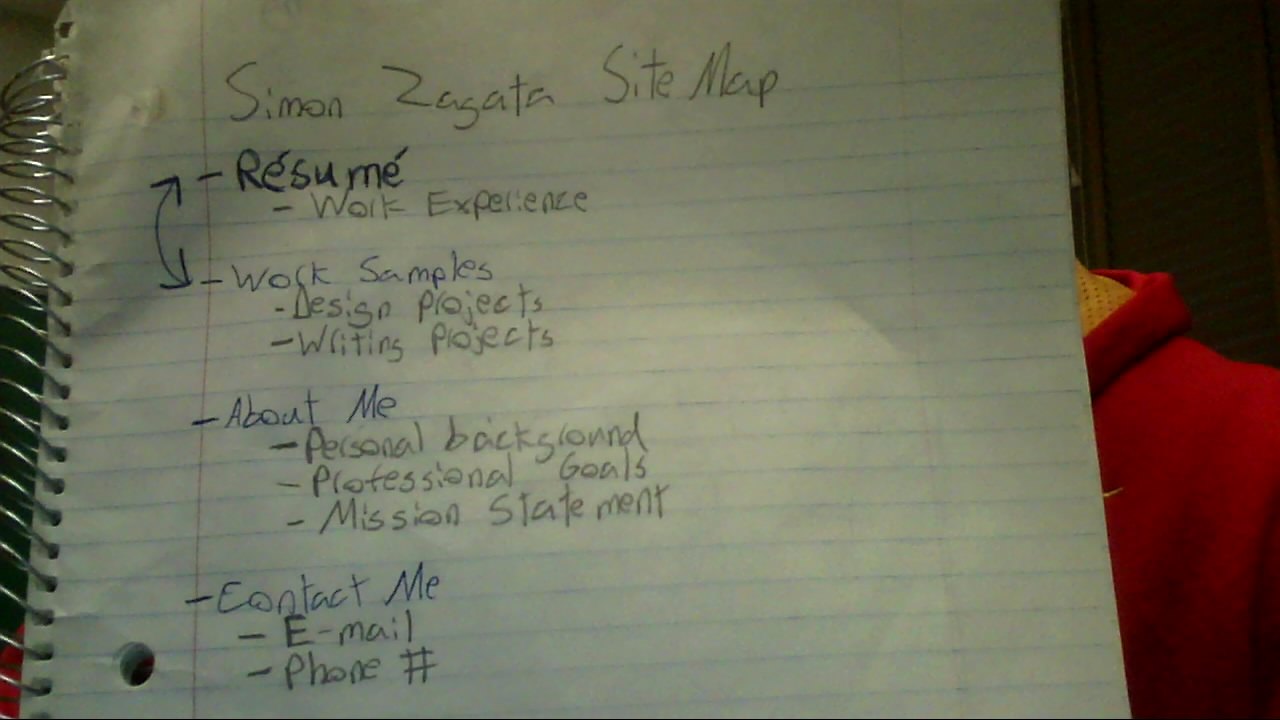 Simon Zagata Site Map
- Résumé
- Work Experience
- Work Samples
- Design Projects
- Writing Projects
- About Me
- Personal background
- Professional Goals
- Mission Statement
- Contact Me
- E-mail
- Phone #